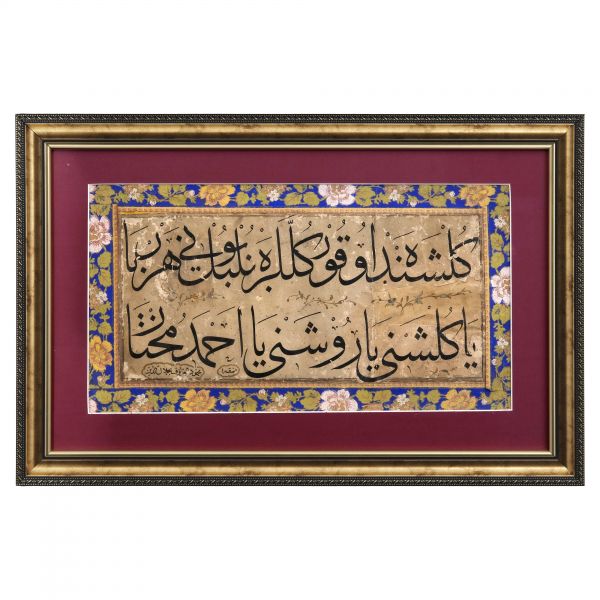 گلشنده اوقور گللره بلبل بونی هر بار
یا گلشنی یا روشنی یا احمد مختار